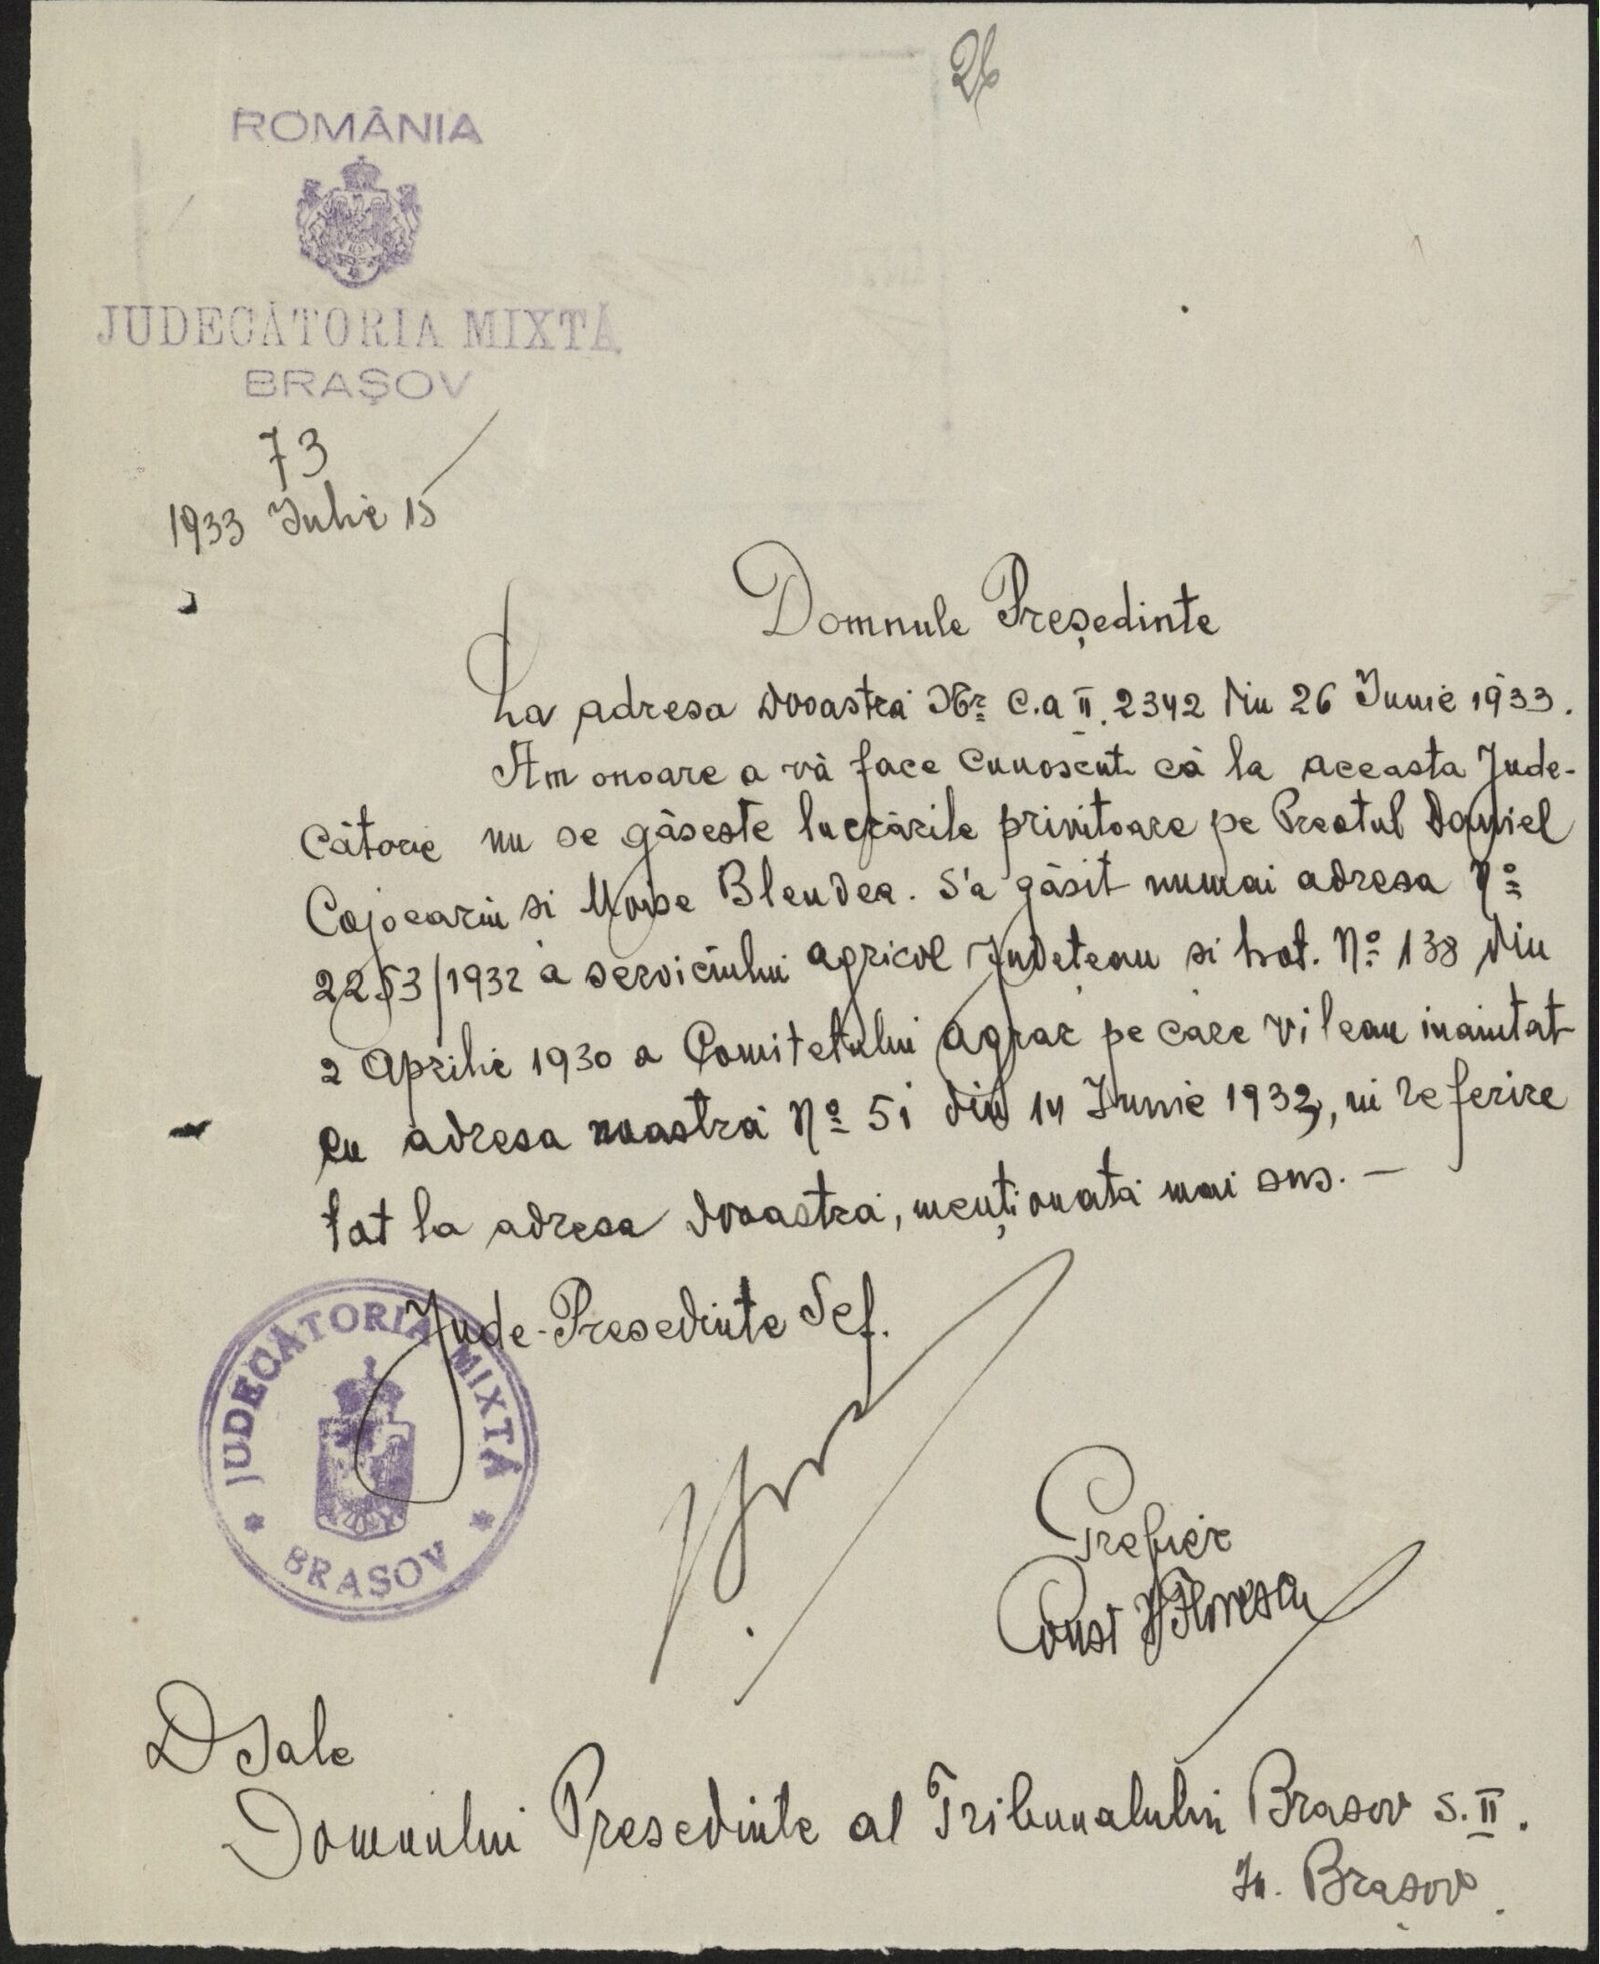 26
ROMÂNIA
JUDECĂTORIA MIXTĂ
BRAŞOV
73
1933 Iulie 15
Domnule Preşedinte
La adresa Dvoastră Nr. C.a II. 2342 din 26 Iunie 1933.
Am onoare a vă face cunoscut că la aceasta Jude-
cătorie nu se găseste lucrările privitoare pe Preotul Daniel
Cojocariu si Moise Blendea. S'a găsit numai adresa No
2253/1932 a serviciului agricol Judeţean si hot. No 138 din
2 Aprilie 1930 a Comitetului agrar pe care vi leau inaintat
cu adresa noastră No 51 din 14 Iunie 1933, in referire
tot la adresa Dvoastră, menţionată mai sus. —
Jude-Presedinte Sef.
JUDECĂTORIA MIXTĂ
BRASOV
Grefier
Const Florescu
D Sale
Domnului Presedinte al Tribunalului Brasov S. II.
In. Braşov.